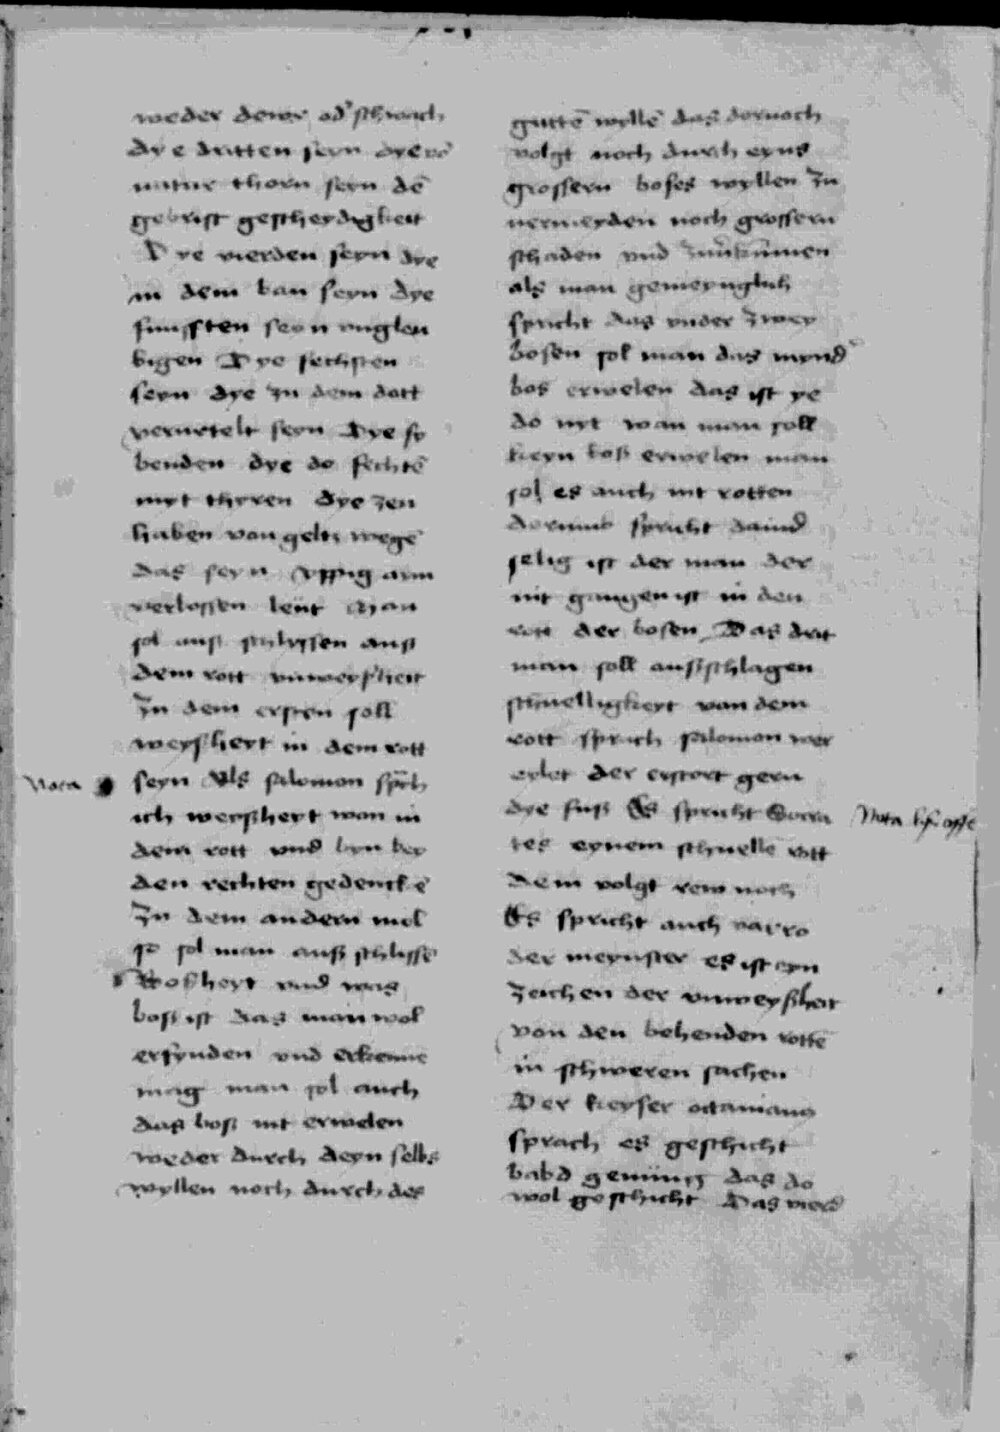 weder dewr od' schwach
dye dritten seyn dye vō
natur thorn seyn dē
gebrist gescheydigkeit
Dye vierden seyn dye
in dem ban seyn dye
funfften seyn vngleu
bigen Dye sechsten
seyn dye zu dem dott
verurtelt seyn Dye sy
benden dye do fechtē
myt thyren dye zen
haben von geltz wegē
das seyn vppig arm
verlossen leut Man
sol auß schlyssen auß
dem rott vnweyßheit
Zu dem ersten soll
weyßheyt in dem rott
Nota
seyn Als salomon sp̄ch
ich weyßheyt won in
dem rott vnd byn bey
den rechten gedenckē
Zu dem andern mol
so sol man auß schlissē
Boßheyt vnd was
boß ist das man wol
erfynden vnd erkennē
mag man sol auch
das boß nit erwelen
weder durch deyn selbs
wyllen noch durch des
guttē wyllē das dornoch
volgt noch durch eyns
grossern boses wyllen zu
vermeyden noch grossern
schaden vnd
als man gemeynglich
spricht das vnder zwey
bosen sol man das mynd'
bos erwelen das ist ye
do nyt wan man soll
keyn boß erwelen man
sol es auch nit rotten
dorumb spricht dauid
selig ist der man der
nit gangen ist in den
rott der bosen Das drit
man soll außschlagen
schnelligkeyt von dem
rott sprach salomon wer
eylet der erstort gern
dye fuß Es spricht Socra
Nota
tes eynem schnellē rott
dem volgt rew noch
Es spricht auch varro
der meynster es ist eyn
zeichen der vnweyßheit
von den behenden rottē
in schweren sachen
Der keyser octauianus
sprach es geschicht
bald genung das do
wol geschicht Das vierd